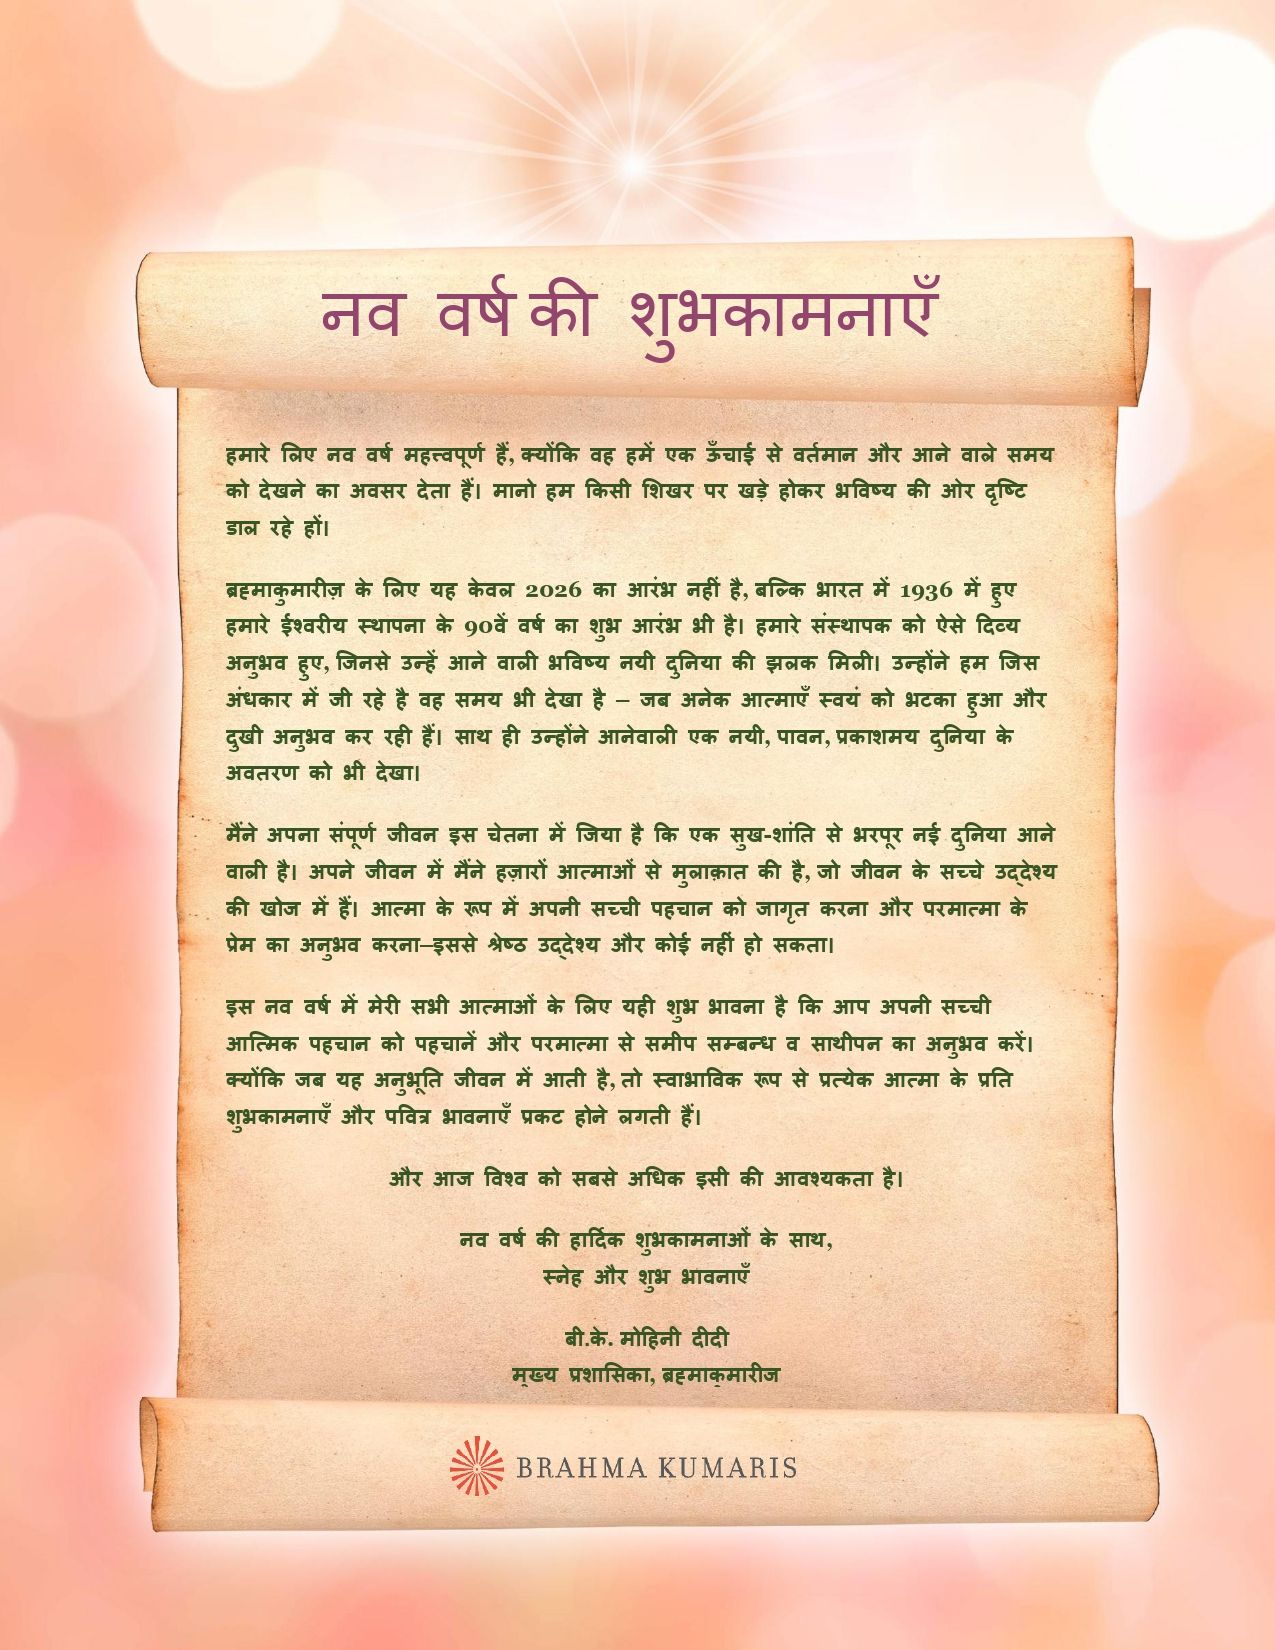 नव वर्ष की शुभकामनाएँ
हमारे लिए नव वर्ष महत्त्वपूर्ण हैं, क्योंकि वह हमें एक ऊँचाई से वर्तमान और आने वाले समय
को देखने का अवसर देता हैं। मानो हम किसी शिखर पर खड़े होकर भविष्य की ओर दृष्टि
डाल रहे हों।
ब्रह्माकुमारीज़ के लिए यह केवल 2026 का आरंभ नहीं है, बल्कि भारत में 1936 में हुए
हमारे ईश्वरीय स्थापना के 90वें वर्ष का शुभ आरंभ भी है। हमारे संस्थापक को ऐसे दिव्य
अनुभव हुए, जिनसे उन्हें आने वाली भविष्य नयी दुनिया की झलक मिली। उन्होंने हम जिस
अंधकार में जी रहे है वह समय भी देखा है – जब अनेक आत्माएँ स्वयं को भटका हुआ और
दुखी अनुभव कर रही हैं। साथ ही उन्होंने आनेवाली एक नयी, पावन, प्रकाशमय दुनिया के
अवतरण को भी देखा।
मैंने अपना संपूर्ण जीवन इस चेतना में जिया है कि एक सुख-शांति से भरपूर नई दुनिया आने
वाली है। अपने जीवन में मैंने हज़ारों आत्माओं से मुलाक़ात की है, जो जीवन के सच्चे उद्देश्य
की खोज में हैं। आत्मा के रूप में अपनी सच्ची पहचान को जागृत करना और परमात्मा के
प्रेम का अनुभव करना–इससे श्रेष्ठ उद्देश्य और कोई नहीं हो सकता।
इस नव वर्ष में मेरी सभी आत्माओं के लिए यही शुभ भावना है कि आप अपनी सच्ची
आत्मिक पहचान को पहचानें और परमात्मा से समीप सम्बन्ध व साथीपन का अनुभव करें।
क्योंकि जब यह अनुभूति जीवन में आती है, तो स्वाभाविक रूप से प्रत्येक आत्मा के प्रति
शुभकामनाएँ और पवित्र भावनाएँ प्रकट होने लगती हैं।
और आज विश्व को सबसे अधिक इसी की आवश्यकता है।
नव वर्ष की हार्दिक शुभकामनाओं के साथ,
स्नेह और शुभ भावनाएँ
बी.के. मोहिनी दीदी
मुख्य प्रशासिका, ब्रह्माकुमारीज
BRAHMA KUMARIS